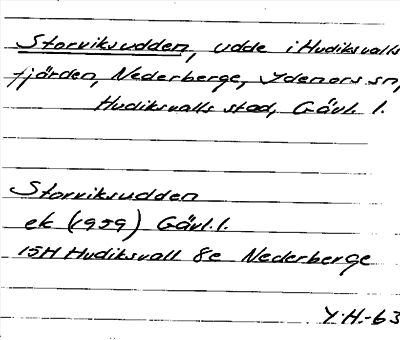 Storviksudden, udde i Hudiksvalls
fjärden, Nederberge, Idenors sn,
Hudiksvalls stad, Gävl. l.
Storviksudden
ek (1959) Gävl. l.
15H Hudiksvall 8e Nederberge
Y.H.-63